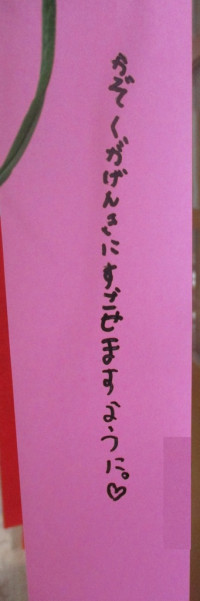 かぞくがげんきにすごせますように。♡